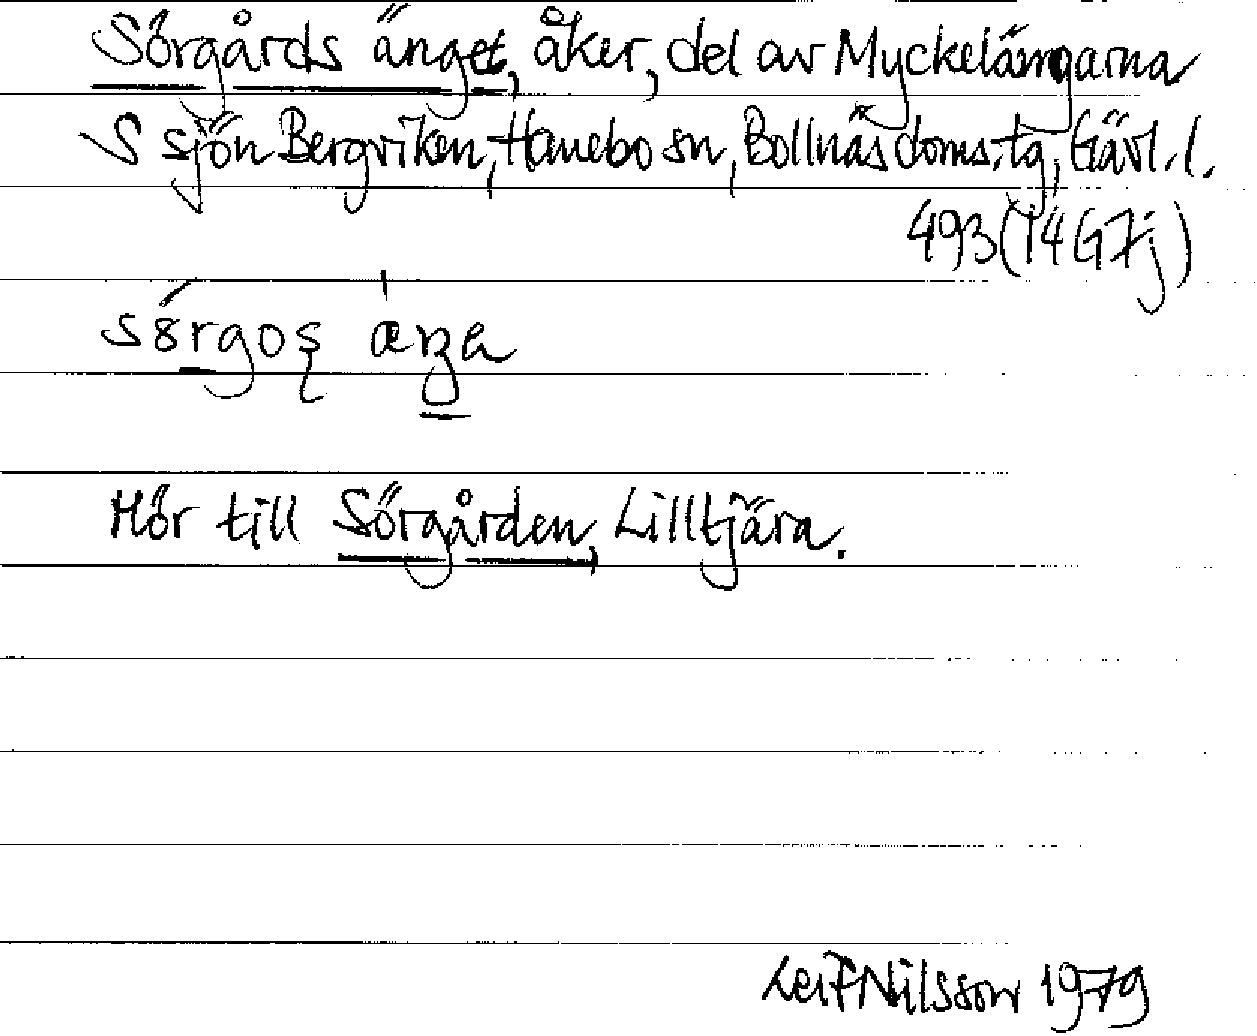 Sörgårds änget, åker, del av Myckelängarna
S sjön Bergviken, Hanebo sn, Bollnäs doms.tg, Gävl. l.
493 (14G7j)
Hör till Sörgården, Lilltjära.
Leif Nilsson 1979